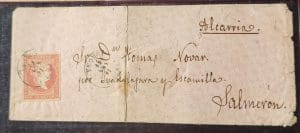 Alcarria
Sr. Dn Tomas Novar.
por Guadalajara y Escamilla
Salmerón.